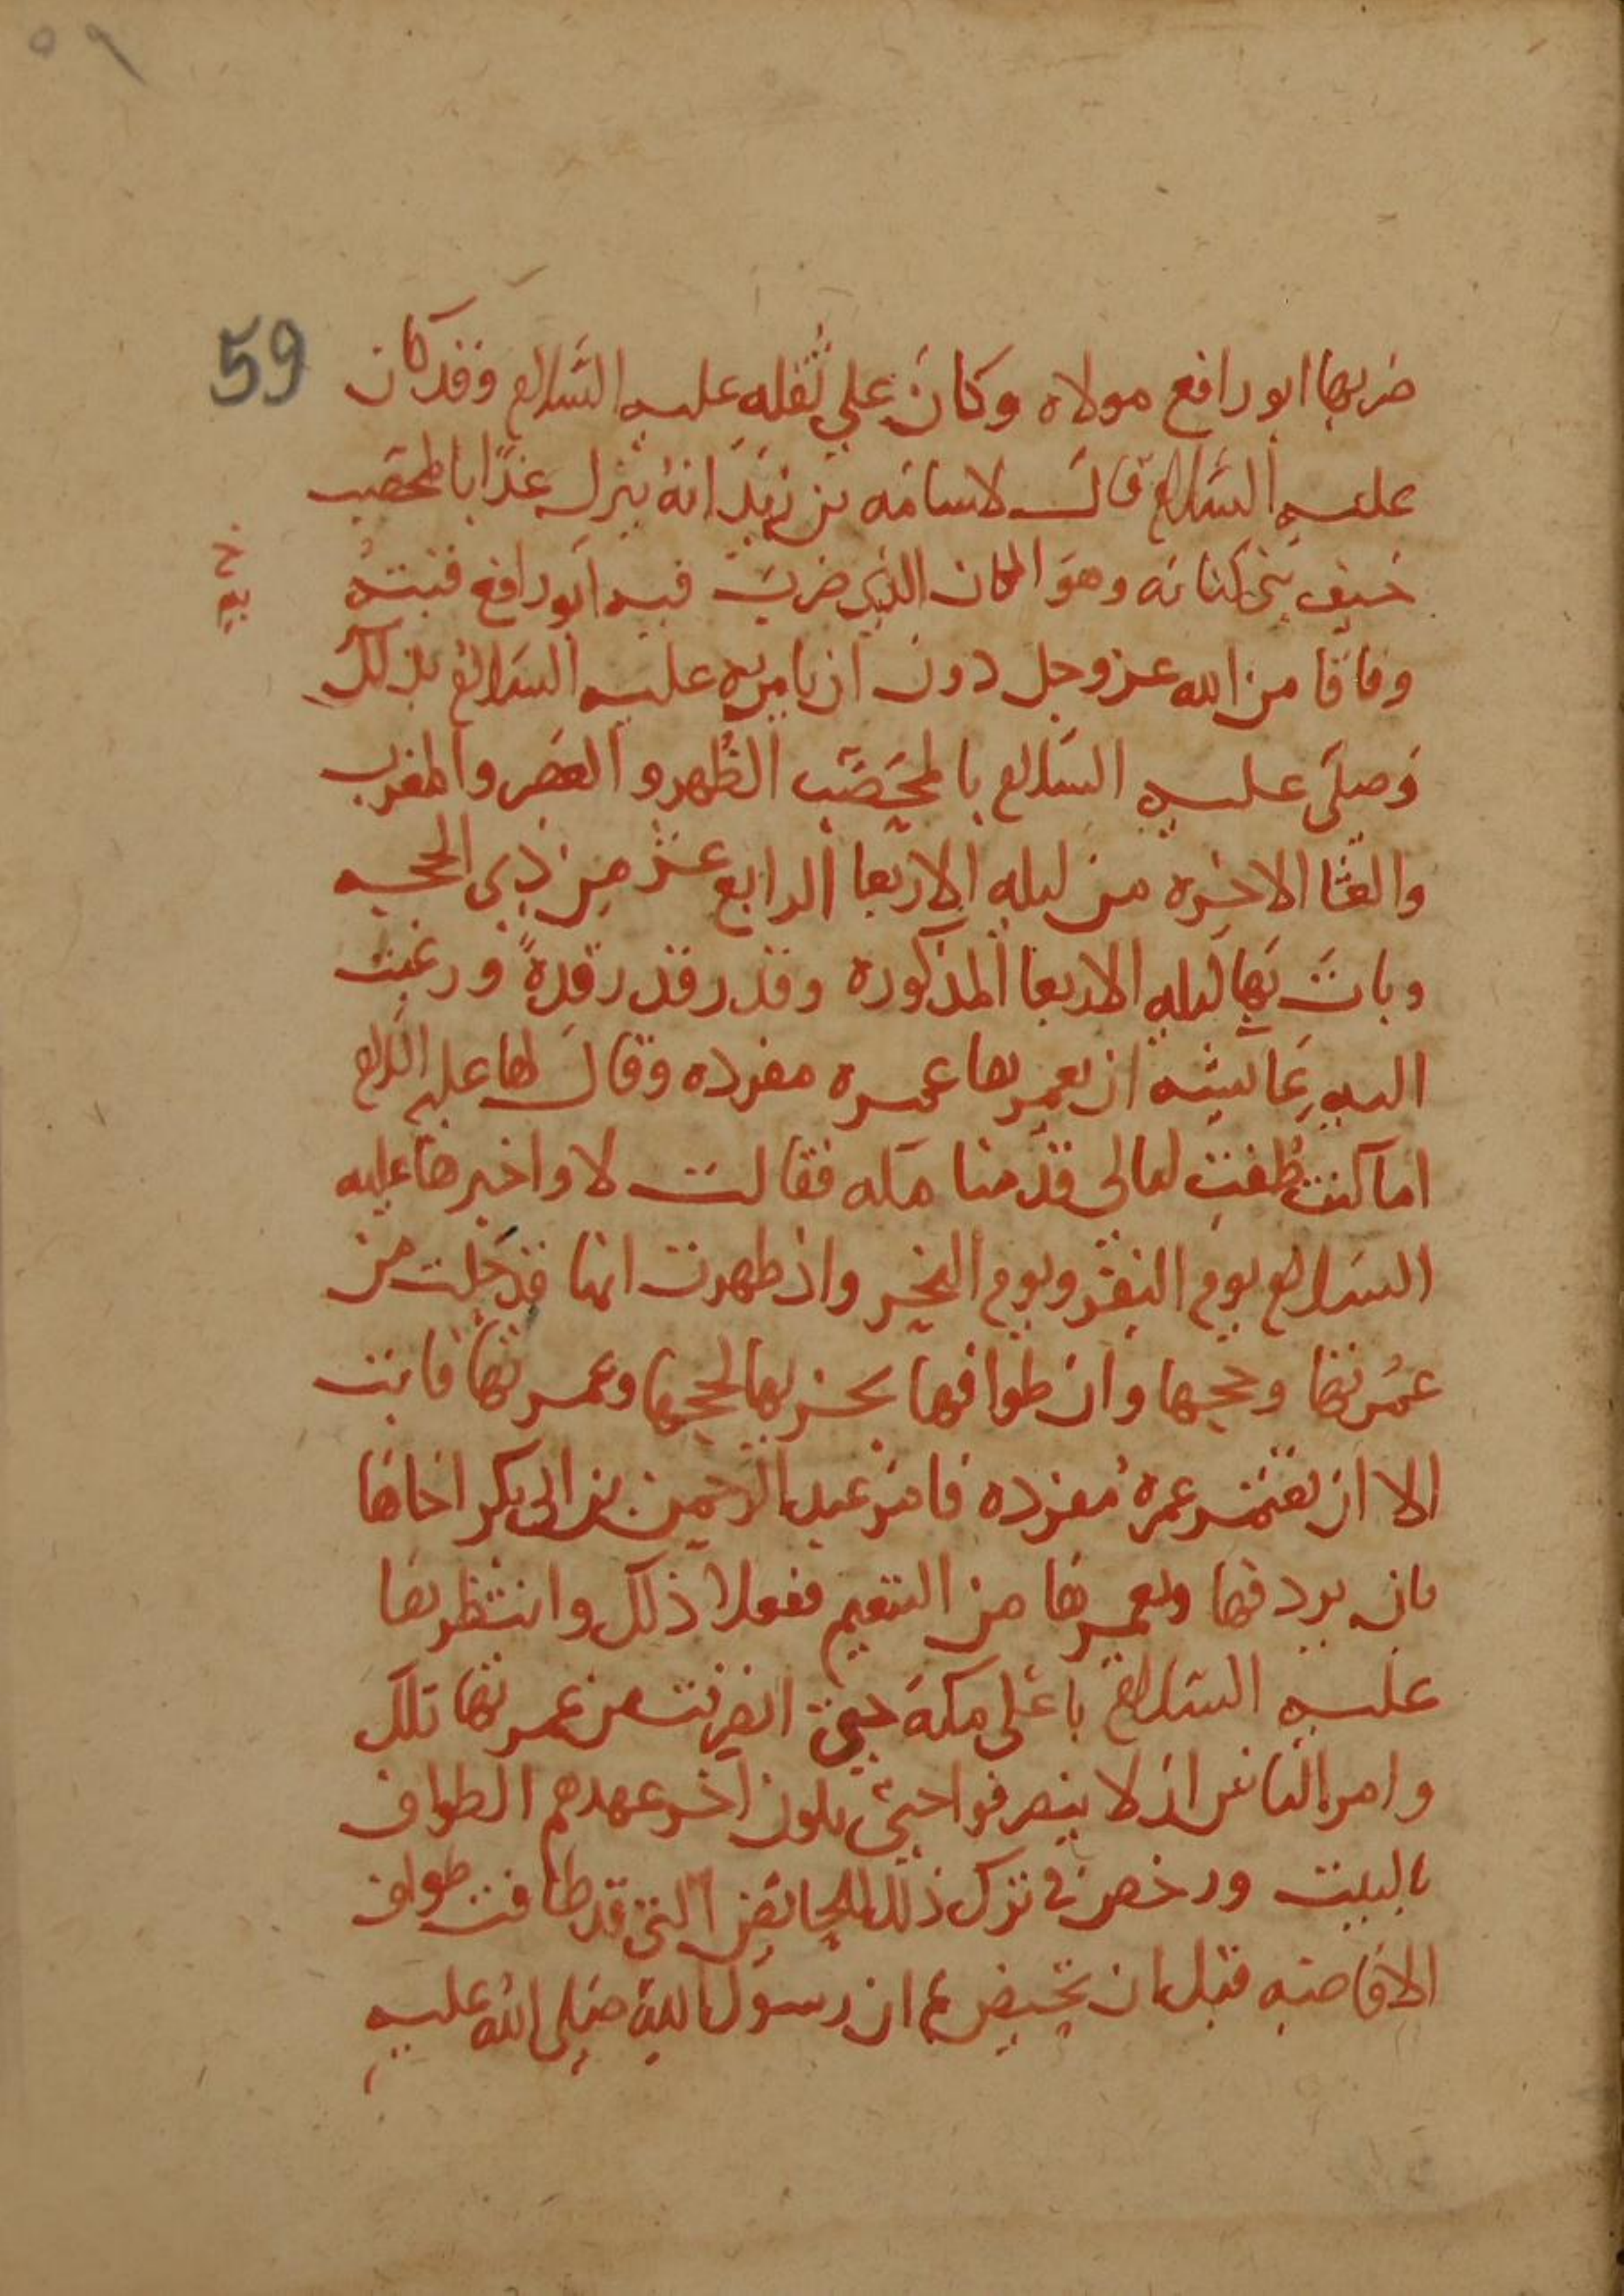 ٥٩
59
ضربها ابو رافع مولاه وكان علي ثقله عليه السلام وقد كان
عليه السلام قال لاسامه بن زيد انه ينزل غدًا بالمحصب
خيف بني كنانه وهو المكان الذي ضرب فيه ابو رافع قبته
وفاقا من الله عز وجل دون ان يامره عليه السلام بذلك
وصلى عليه السلام بالمحصب الظهر والعصر والمغرب
والعشا الاخره من ليله الاربعا الرابع عشر من ذي الحجه
وبات بها ليله الاربعا المذكوره وقد رقد رقدةً ورغبت
اليه عائشه ان يعمرها عمره مفرده وقال لها عليه السلام
اما كنت طفت ليالي قدمنا مكه فقالت لا واخبرها عليه
السلام يوم النفر ويوم النحر واذ طهرت انها قد حلت من
عمرتها وحجها وان طوافها يجزيها لحجها وعمرتها فابت
الا ان تعتمر عمرة مفرده فامر عبد الرحمن بن ابي بكر اخاها
بان يردفها ويعمرها من التنعيم ففعلا ذلك وانتظرها
عليه السلام باعلى مكة حتى انصرفت من عمرتها تلك
وامر الناس ان لا ينصرفوا حتى يكون اخر عهدهم الطواف
بالبيت ورخص في ترك ذلك للحائض التي قد طافت طواف
الافاضه قبل ان تحيض ثم ان رسول الله صلى الله عليه